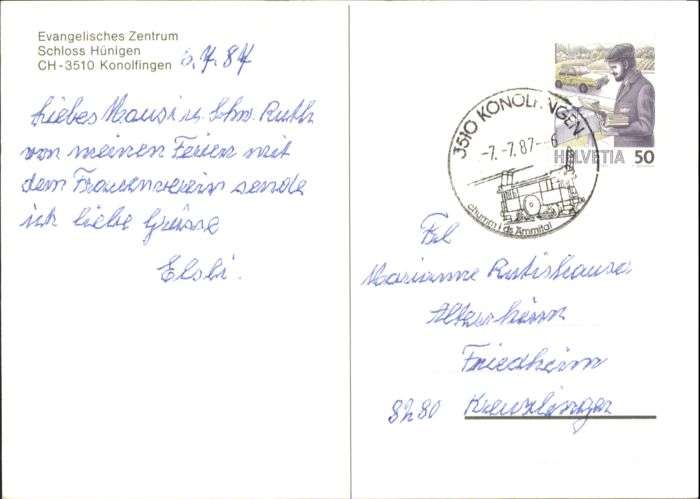 Evangelisches Zentrum
Schloss Hünigen
CH-3510 Konolfingen
6.7.87
Liebes Mausi u. Schw. Ruth
von meinen Ferien mit
dem Frauenverein sende
ich liebe Grüsse
Elsbi.
3510 KONOLFINGEN
-7.-7.87--6
chumm i ds Ämmital
HELVETIA 50
Frl
Marianne Rutishauser
Altersheim
Friedheim
8280 Kreuzlingen